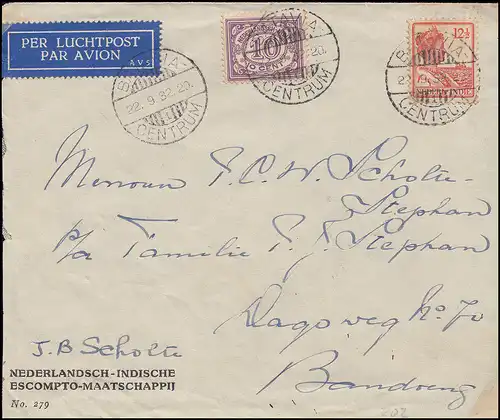 PER LUCHTPOST
PAR AVION
AVS
BATAVIA-
22.9.32.20.
CENTRUM
10
CENT
AVIA-
20.
CENTRUM
12½
BATAVIA-
CENTRUM
Mevrouw P.C.W. Scholte-
Stephan
p/a Familie P.J. Stephan
Dagoweg No. 70
Bandoeng
J.B Scholte
NEDERLANDSCH-INDISCHE
ESCOMPTO-MAATSCHAPPIJ
No. 279